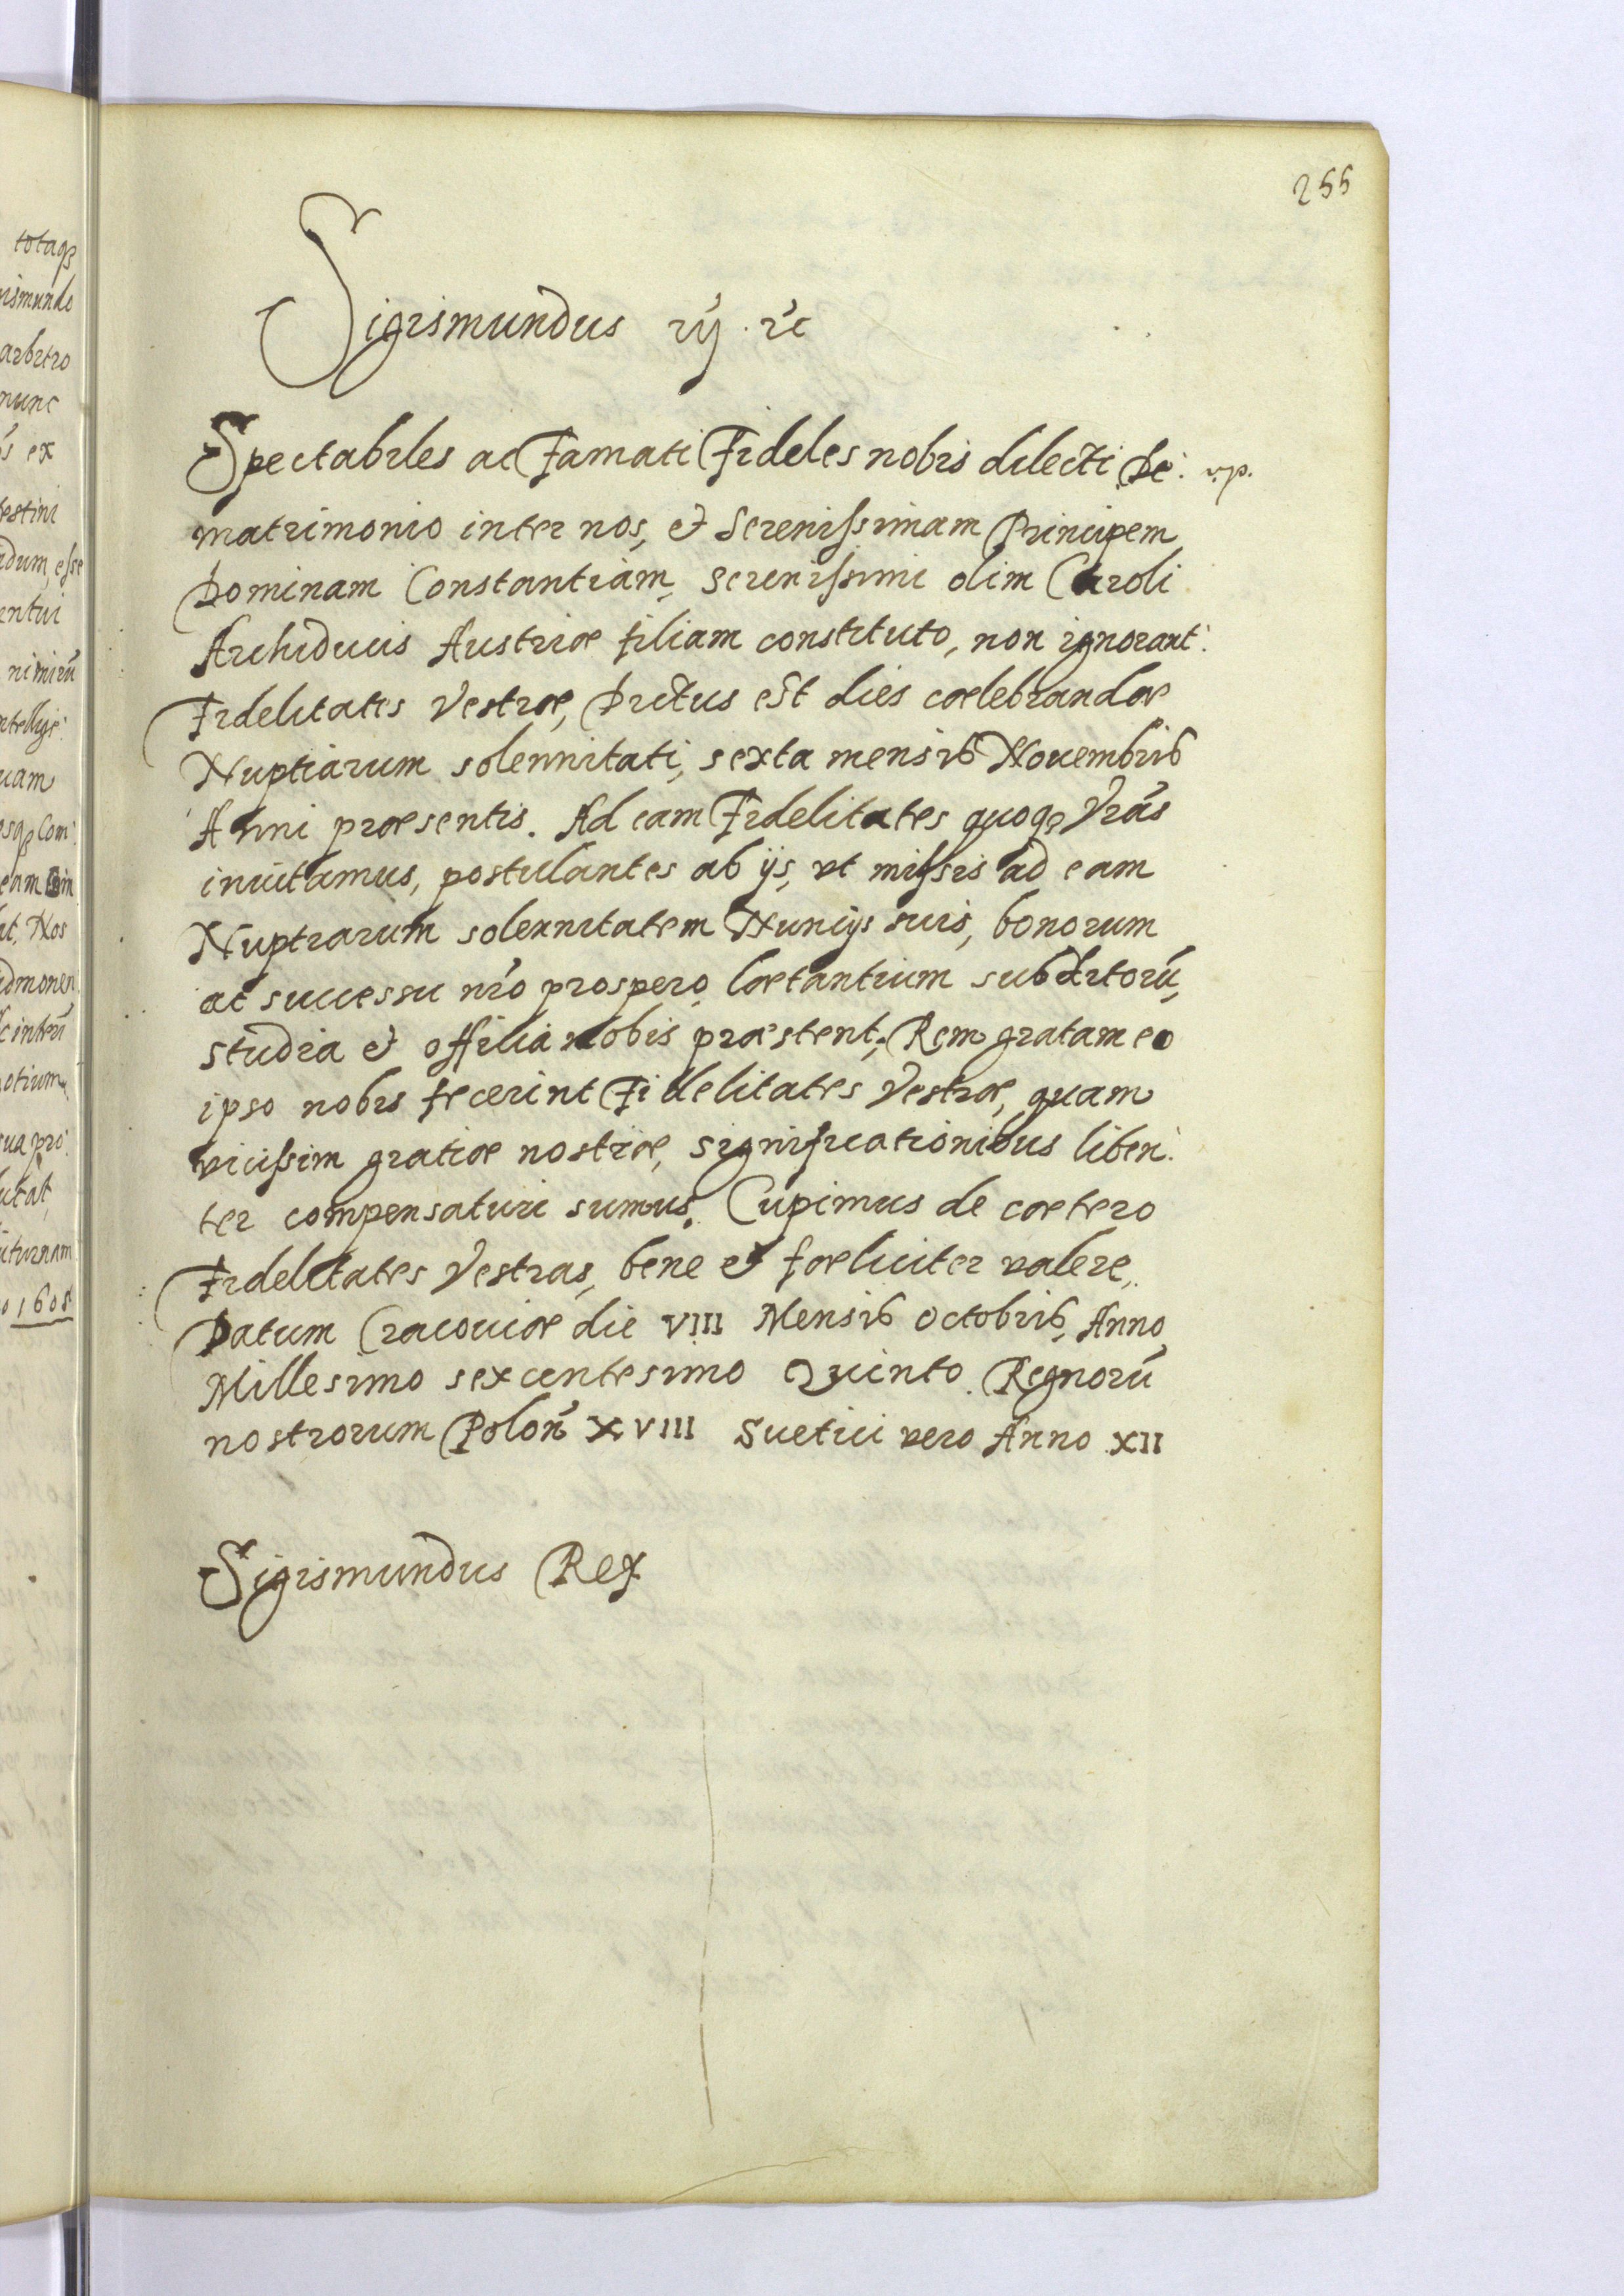 255
Sigismundus
Spectabiles ac Famati Fideles nobis dilecti De
matrimonio inter nos, et Serenissimam Principem
Dominam Constantiam, Serenissimi olim Caroli
Archiducis Austriæ filiam constituto, non ignorant
Fidelitates Vestræ, Dictus est dies cælebrandæ
Nuptiarum solennitati, sexta mensis Nouembris
Anni præsentis. Ad eam Fidelitates quoqꝫ Vr̃as
inuitamus, postulantes ab ijs, vt missis ad eam
Nuptiarum solennitatem Nuncijs suis, bonorum
ac successu nr̃o prospero lætantium subditorũ,
studia et officia nobis præstent, Rem gratam eo
ipso nobis fecerint Fidelitates Vestræ, quam
vicissim gratiæ nostræ, significationibus liben
ter compensaturi sumus. Cupimus de cætero
Fidelitates Vestras, bene et fæliciter valere,
Datum Cracouiæ die VIII Mensis Octobris, Anno
Millesimo sexcentesimo Quinto. Regnorũ
nostrorum Poloñ XVIII Suetici vero Anno XII
Sigismundus Rex